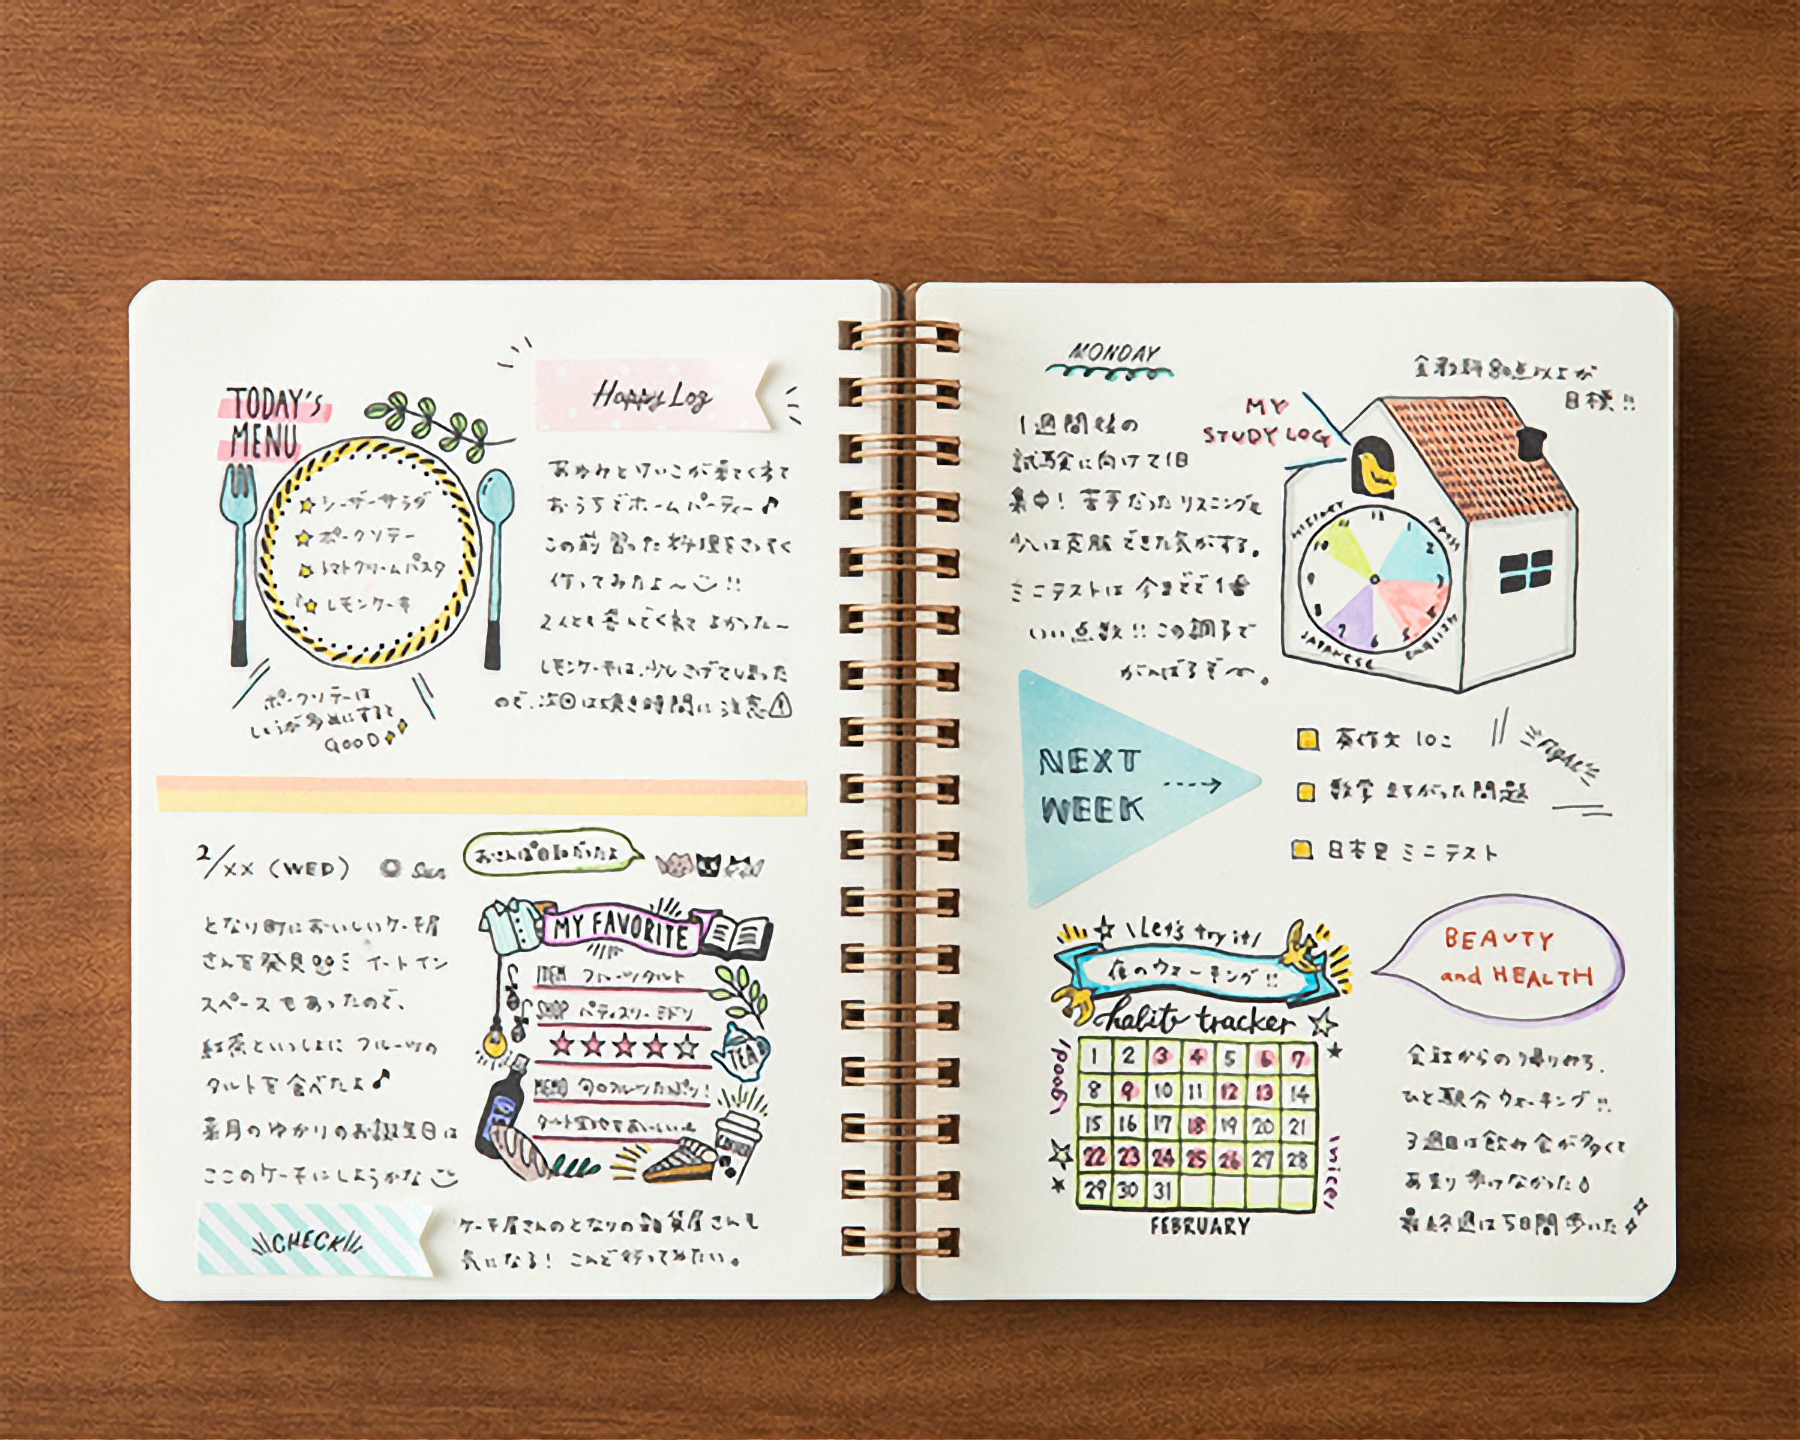 TODAY's
MENU
シーザーサラダ
ポークソテー
トマトクリームパスタ
レモンケーキ
ポークソテーは
しょうが多めにすると
GOOD
Happy Log
あゆみとけいこが来てくれて
おうちでホームパーティー♪
この前習った料理をさっそく
作ってみたよ〜!!
2人とも喜んでくれてよかった〜
レモンケーキは、少しこげてしまった
ので、次回は焼き時間に注意
2/XX (WED) Sun
おさんぽ日和だったよ
となり町においしいケーキ屋
さんを発見 イートイン
スペースもあったので、
紅茶といっしょにフルーツの
タルトを食べたよ♪
来月のゆかりのお誕生日は
ここのケーキにしようかな
MY FAVORITE
ITEM フルーツタルト
SHOP パティスリーミドリ
TEA
MEMO 旬のフルーツたっぷり!
タルト生地もおいしい
COFFEE
CHECK
ケーキ屋さんのとなりの雑貨屋さんも
気になる! こんど行ってみたい。
MONDAY
1週間後の
試験に向けて1日
集中! 苦手だったリスニングも
少しは克服できた気がする。
ミニテストは今までで1番
いい点数!!この調子で
がんばるぞ〜。
MY
STUDY LOG
全教科80点以上が
目標!!
HISTORY
MATH
ENGLISH
JAPANESE
NEXT
WEEK
英作文 10こ
数学 まちがった問題
日本史ミニテスト
Fight!!
Let's try it
夜のウォーキング!!
habit tracker
good
nice!
1 2 3 4 5 6 7
8 9 10 11 12 13 14
15 16 17 18 19 20 21
22 23 24 25 26 27 28
29 30 31
FEBRUARY
BEAUTY
and HEALTH
会社からの帰りみち、
ひと駅分ウォーキング!!
3週目は飲み会が多くて
あまり歩けなかった
最終週は5日間歩いた